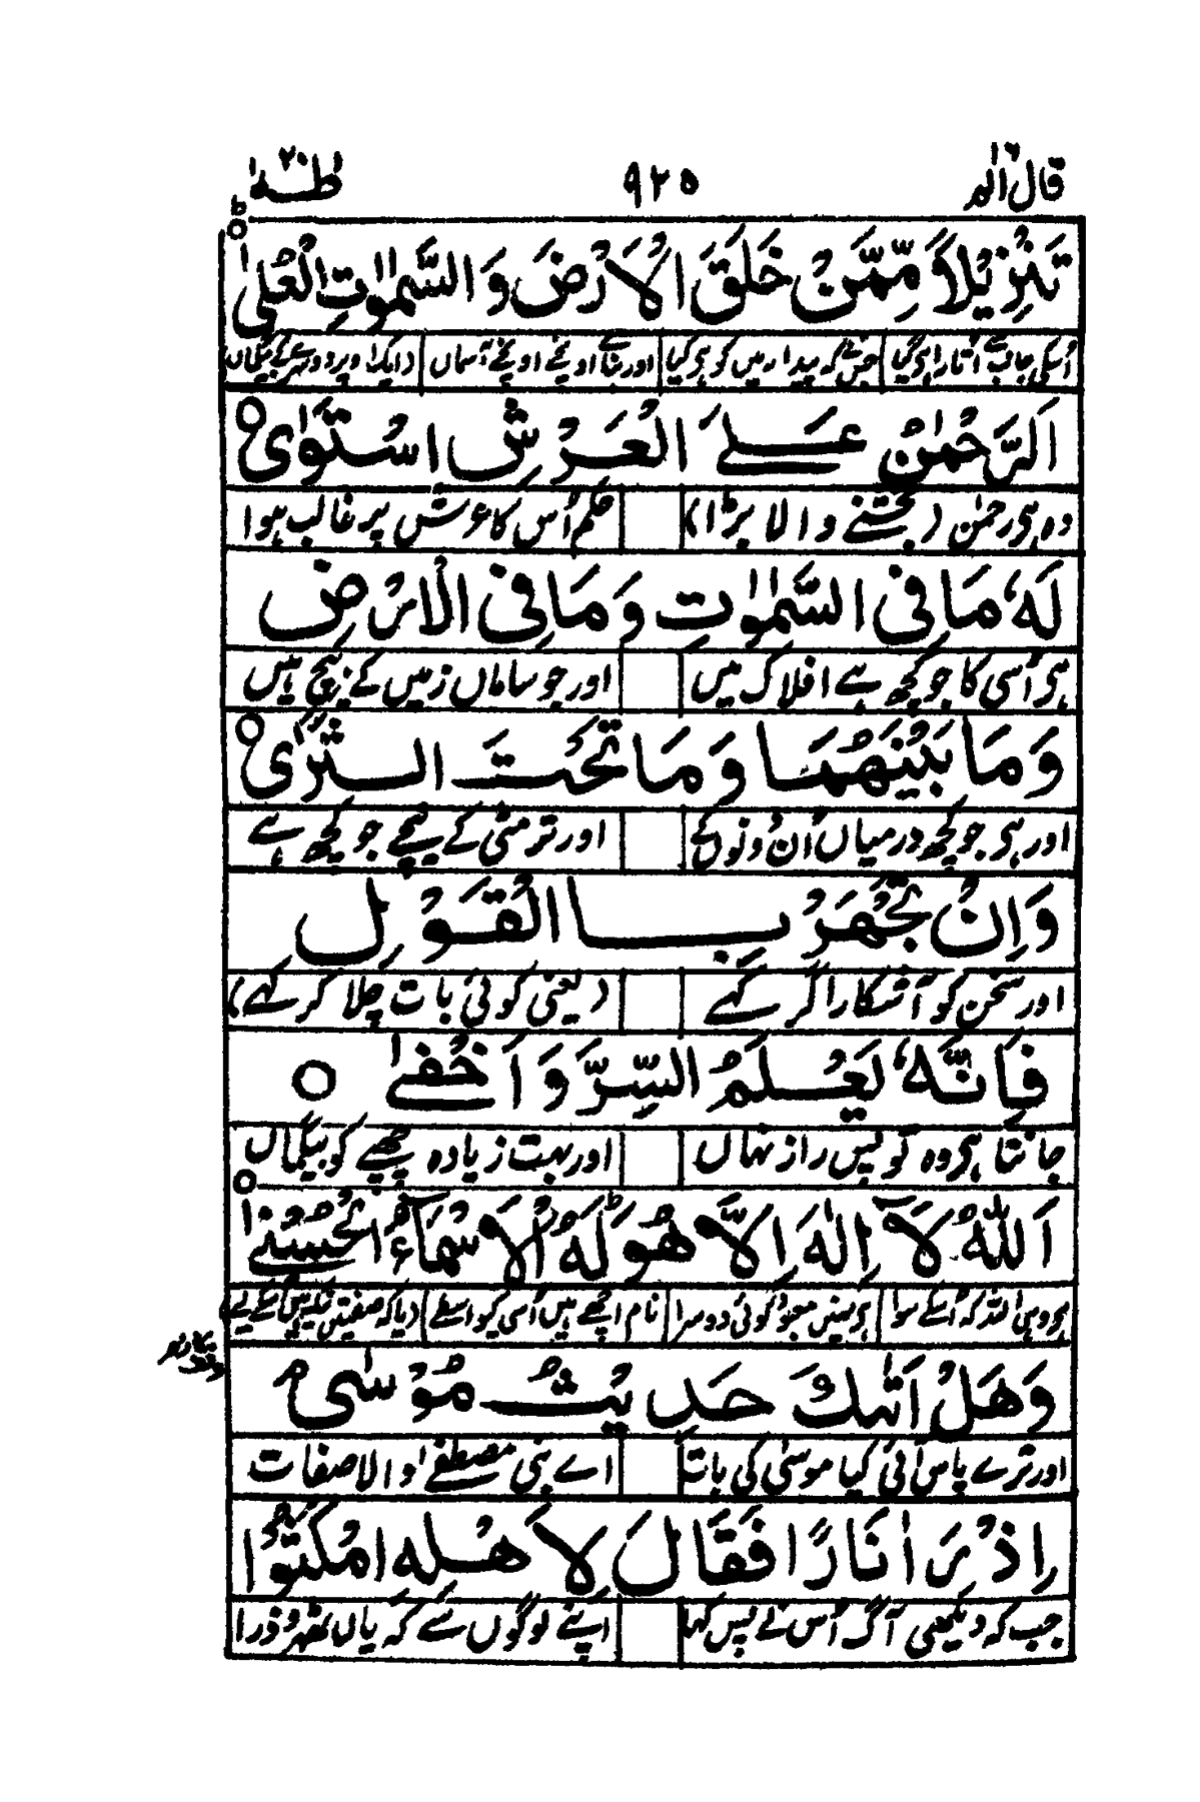 قال الم ١٦ ٩٢٥ طٰهٰ ٢٠
تَنْزِيْلًا مِّمَّنْ خَلَقَ الْاَرْضَ وَالسَّمٰوٰتِ الْعُلٰى ○ ط
اُسکی جانب سے اُتارا ہی گیا جس نے کہ پیدا زمیں کو ہی کیا اور بنائے اونچے اونچے آسماں
اَلرَّحْمٰنُ عَلَے الْعَرْشِ اسْتَوٰى ○
وہ ہی رحمٰن (بخشنے والا بڑا) حکم اُس کا عرش پر غالب ہوا
لَهٗ مَا فِى السَّمٰوٰتِ وَمَا فِى الْاَرْضِ
ہی اُسی کا جو کچھ ہے افلاک میں اور جو ساماں زمیں کے بیچ ہیں
وَمَا بَيْنَهُمَا وَمَا تَحْتَ الثَّرٰى ○
اور ہی جو کچھ درمیاں اُن دونوں کے اور تر مٹی کے نیچے جو کچھ ہے
وَاِنْ تَجْهَرْ بِالْقَوْلِ
اور سخن کو آشکارا گر کہے (یعنی کوئی بات چلا کر کہے)
فَاِنَّهٗ يَعْلَمُ السِّرَّ وَاَخْفٰے ○
جانتا ہی وہ تو بس راز نہاں اور بہت زیادہ چھپے کو بیگماں
اَللّٰهُ لَآ اِلٰهَ اِلَّا هُوَ لَهُ الْاَسْمَآءُ الْحُسْنٰے ○
ہی وہی اللہ کہ اُسکے سوا ہی نہیں معبود کوئی دوسرا نام اچھے ہیں اُسی کیواسطے
وَهَلْ اَتٰىكَ حَدِيْثُ مُوْسٰى م
اور ترے پاس آئی کیا موسیٰ کی بات اے نبی مصطفےٰ والا صفات
اِذْ رَاٰ نَارًا فَقَالَ لِاَهْلِهِ امْكُثُوْٓا
جب کہ دیکھی آگ اُس نے پس کہا اپنے لوگوں سے کہ یاں ٹھہرو ذرا